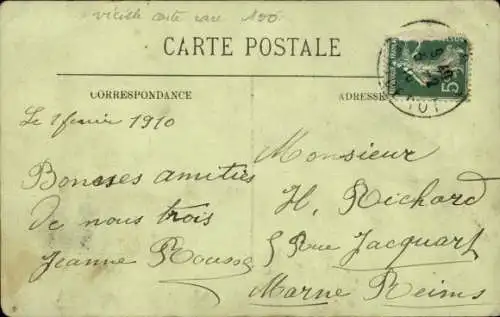 carte rare 100
CARTE POSTALE
CORRESPONDANCE
ADRESSE
Le 2 février 1910
Bonnes amitiés
de nous trois
Jeanne Rousse
Monsieur
H. Richard
5 Rue Jacquart
Marne Reims
5